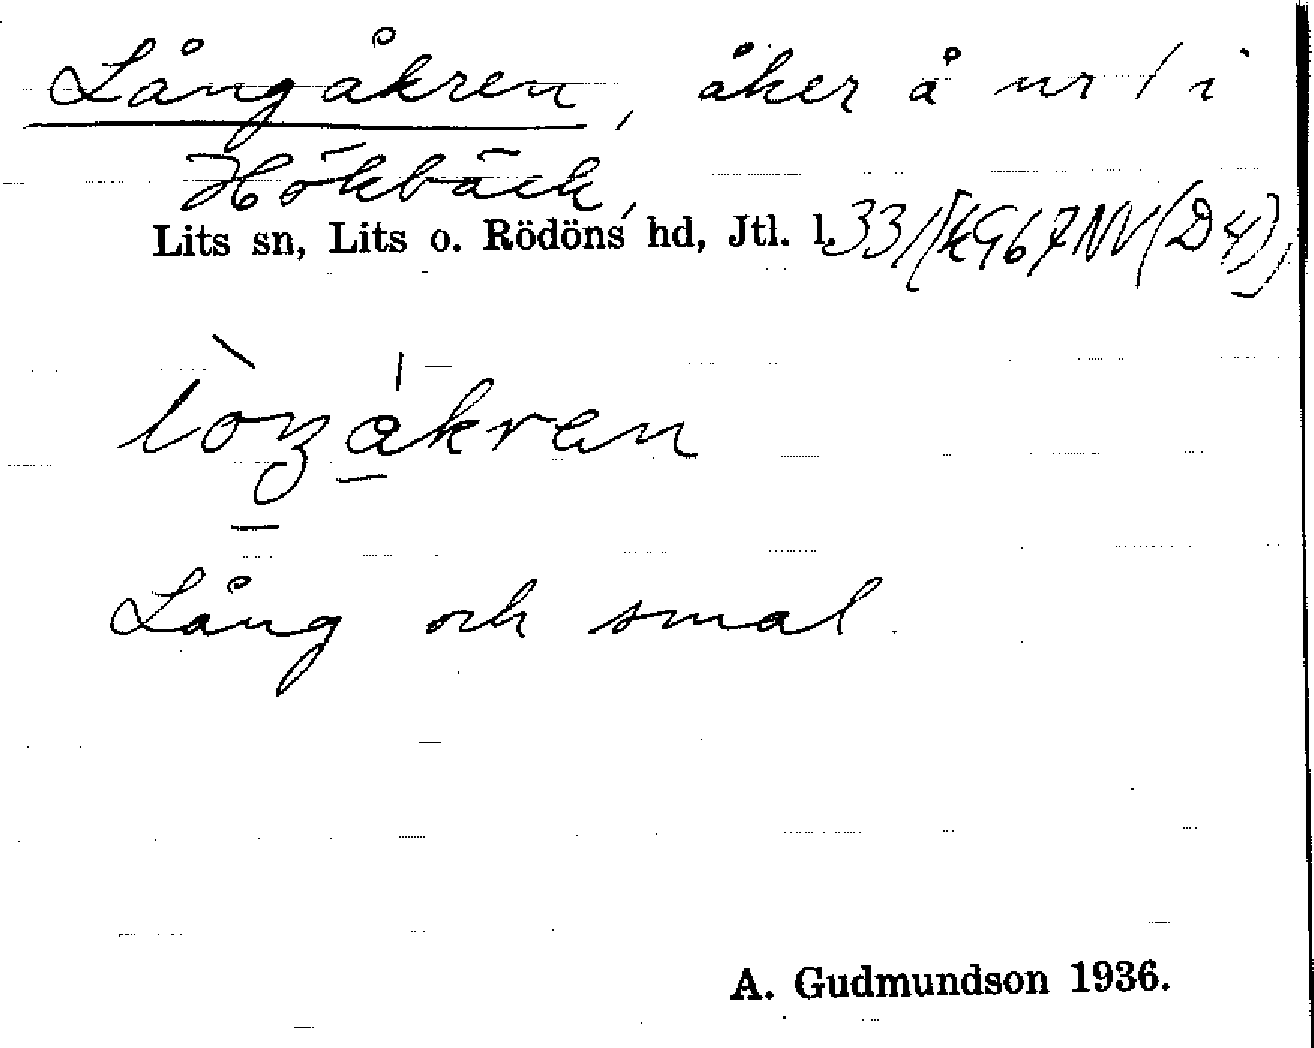 Långåkren, åker å nr 1 i
Hökbäck,
Lits sn, Lits o. Rödöns hd, Jtl. l.
lòŋákren
Lång och smal.
A. Gudmundson 1936.